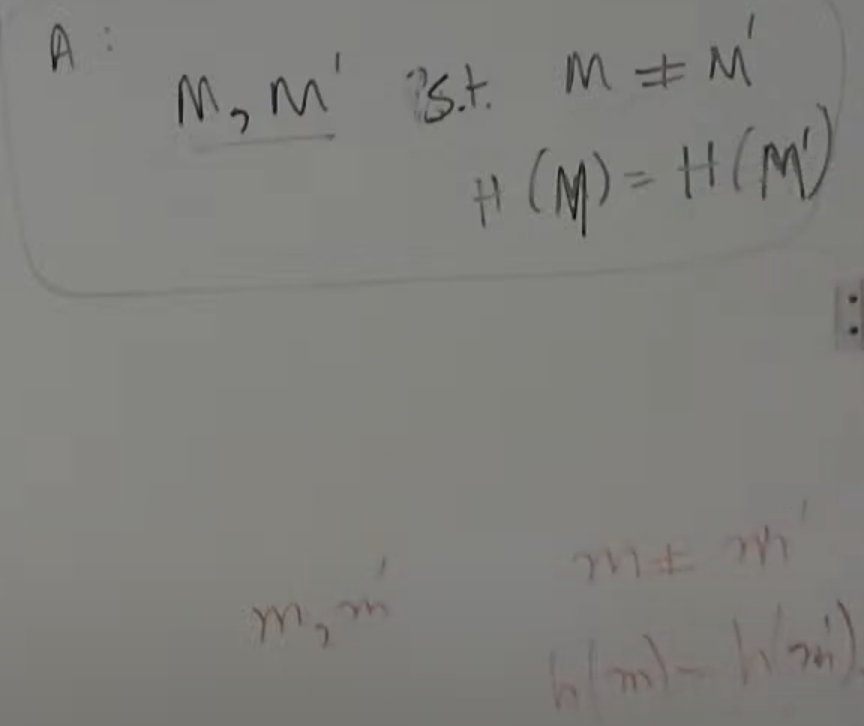 A :
M, M' s.t. M ≠ M'
H (M) = H (M')
:
m, m' m ≠ m'
h(m) = h(m')